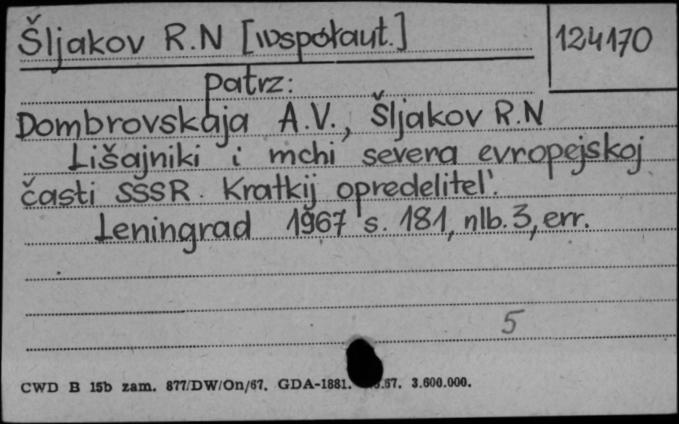 Šljakov R.N [współaut.]
124170
patrz:
Dombrovskaja A.V., Šljakov R.N
Lišajniki i mchi severa evropejskoj
časti SSSR. Kratkij opredelitel'.
Leningrad 1967 s. 181, nlb. 3, err.
5
CWD B 15b zam. 877/DW/On/67. GDA-1881. .67. 3.600.000.